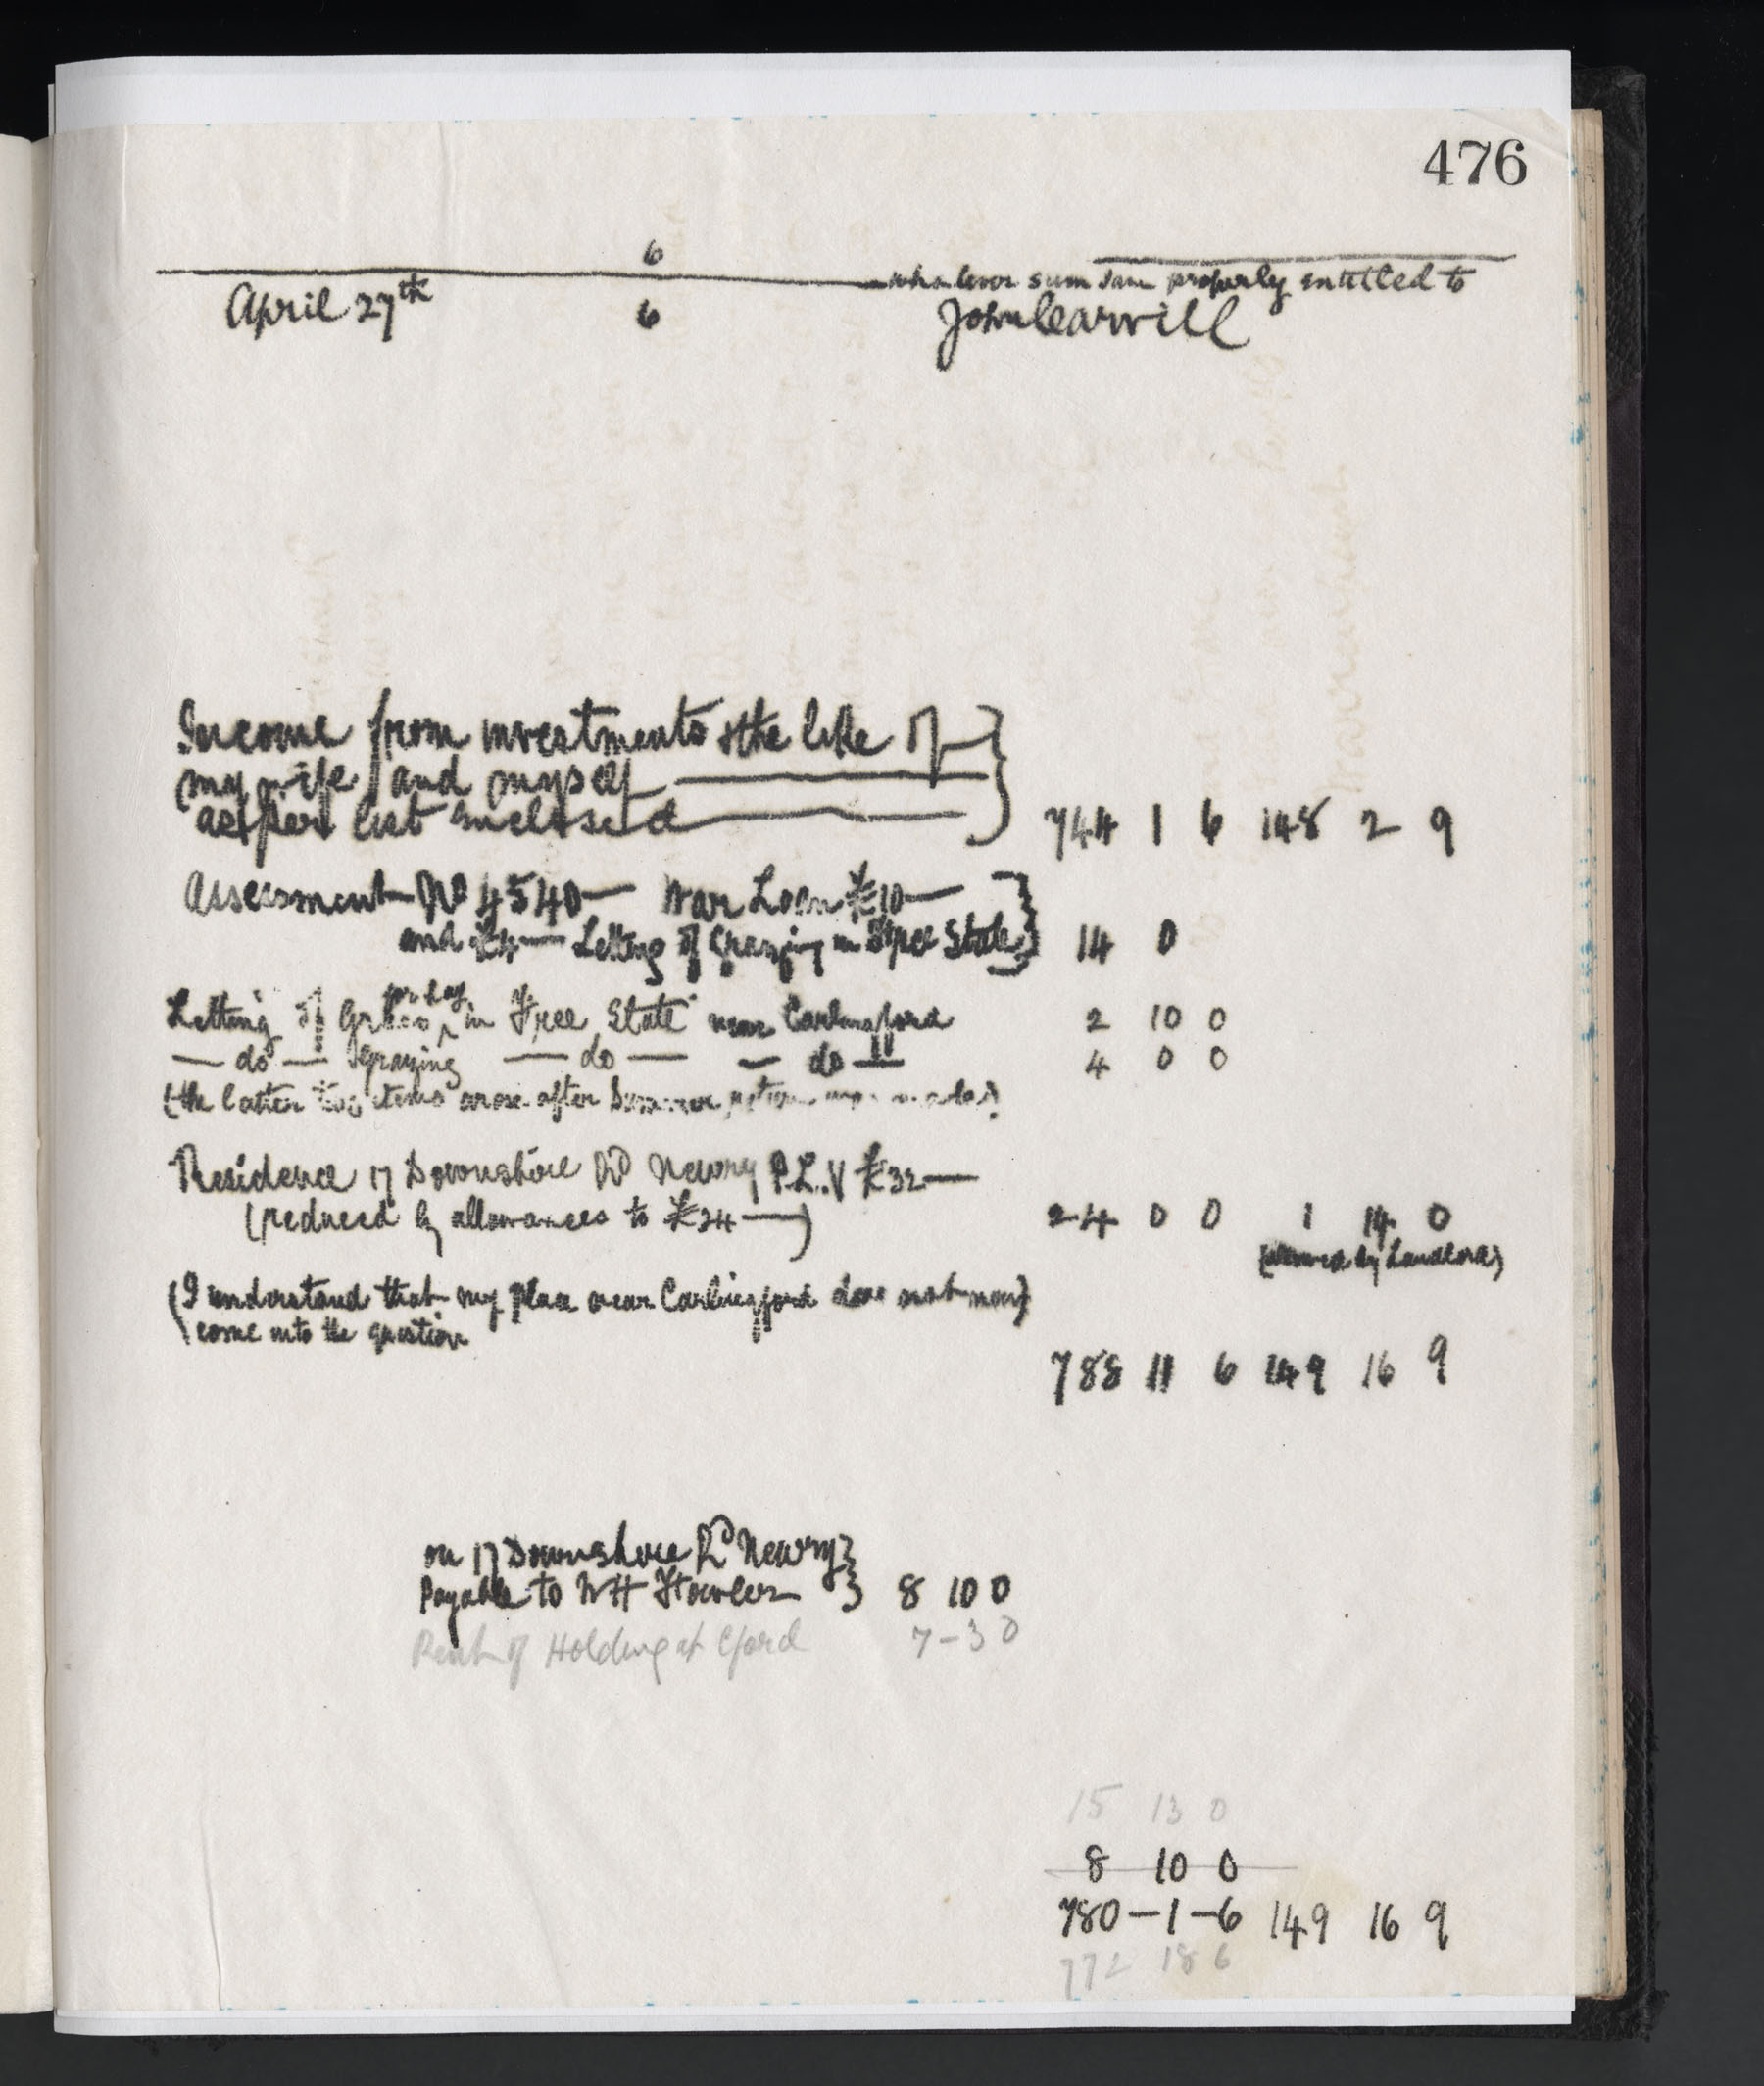 476
6
whatever sum I am properly entitled to
April 27th 6 John Carvill
Income from investments & the like of
my wife and myself
as per list enclosed 744 1 6 148 2 9
Assessment No 4540 — War Loan £10 —
and £4 — Letting of Grazing in Free State 14 0
for hay
Letting of Grass in Free State near Carlingford 2 10 0
— do — Grazing — do — — do — 4 0 0
(the latter two items arose after return was made)
Residence 17 Downshire Rd Newry P.L.V £32 —
(reduced by allowances to £24 —) 24 0 0 1 14 0
by Landlord)
(I understand that my place near Carlingford does not now)
come into the question
788 11 6 149 16 9
on 17 Downshire Rd Newry
Payable to W H 8 10 0
Rent of Holding at Cford 7-3 0
15 13 0
8 10 0
780-1-6 149 16 9
772 18 6